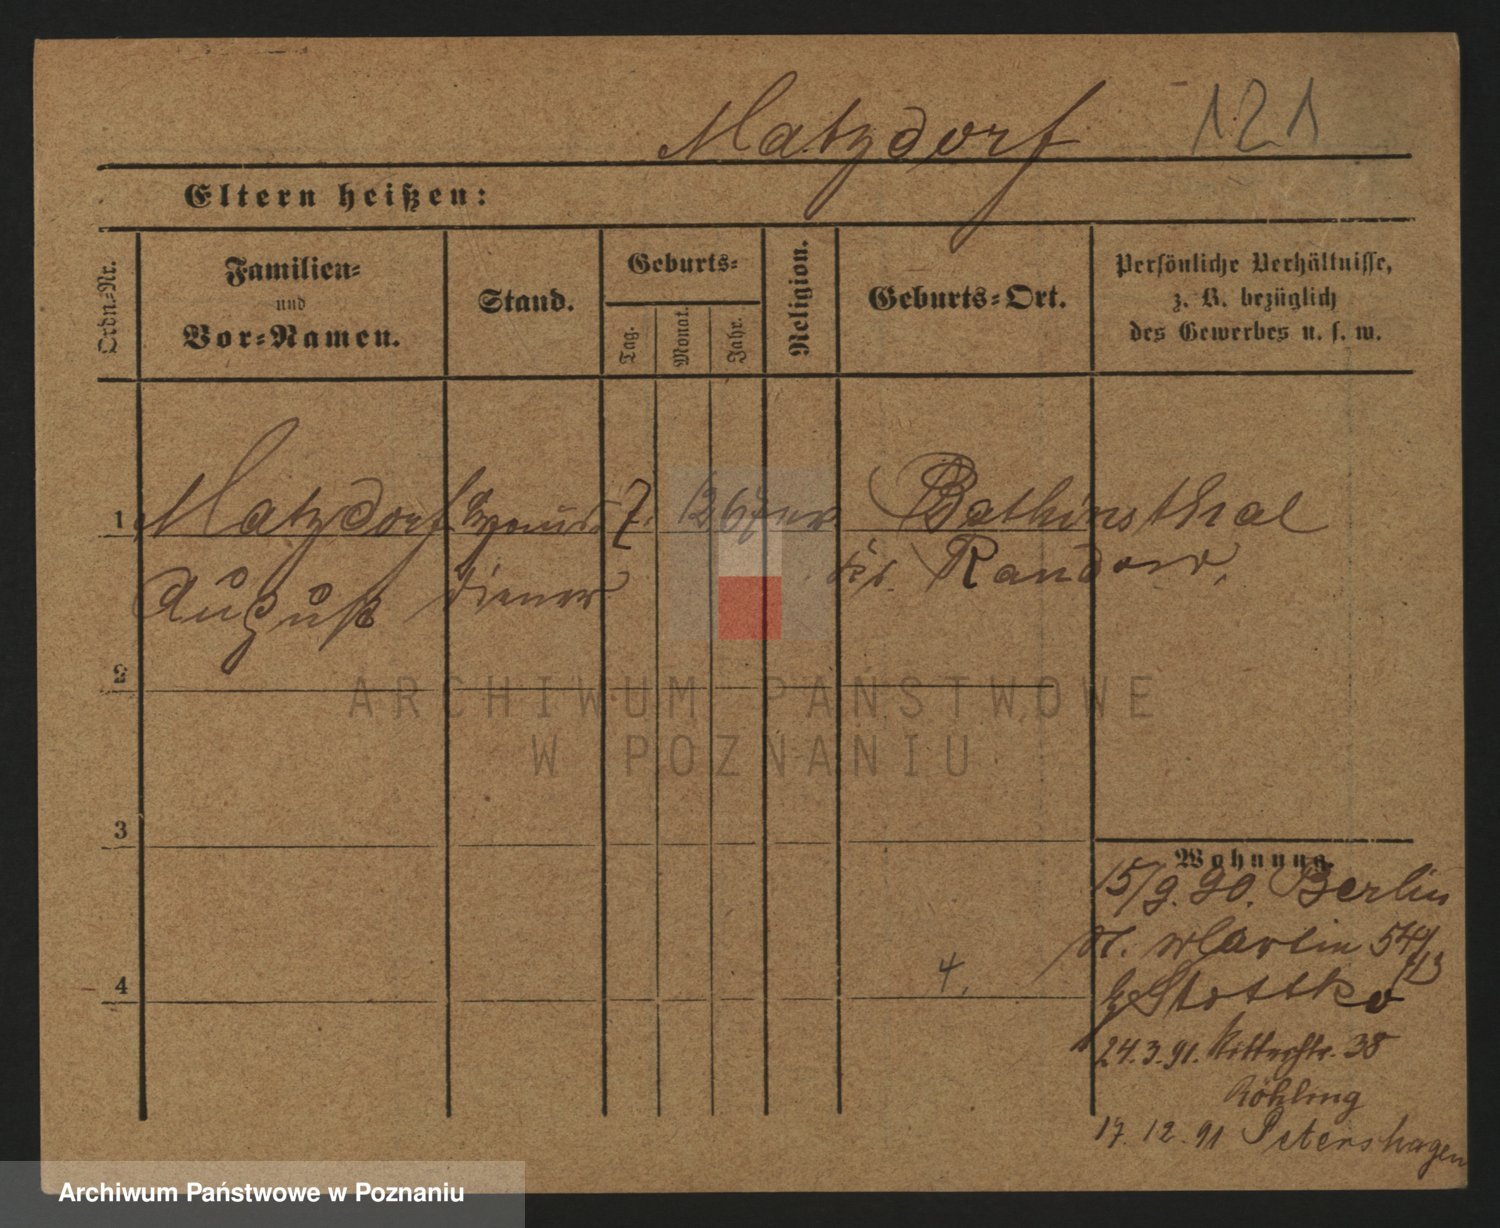 Matzdorf 121
Eltern heißen:
Ordn.-Nr.
Familien-
und
Vor-Namen.
Stand.
Geburts-
Tag.
Monat.
Jahr.
Religion.
Geburts-Ort.
Persönliche Verhältnisse,
z. B. bezüglich
des Gewerbes u. s. w.
1 Matzdorf 7. 12 67 ev
August diener Kr. Randow,
2
ARCHIWUM PAŃSTWOWE
W POZNANIU
3
Wohnung.
15/9. 90. Berlin
St. Martin 54/
13
4 4.
24.3.91. Ritterstr. 38
Röhling
17. 12. 91 Petershagen
Archiwum Państwowe w Poznaniu